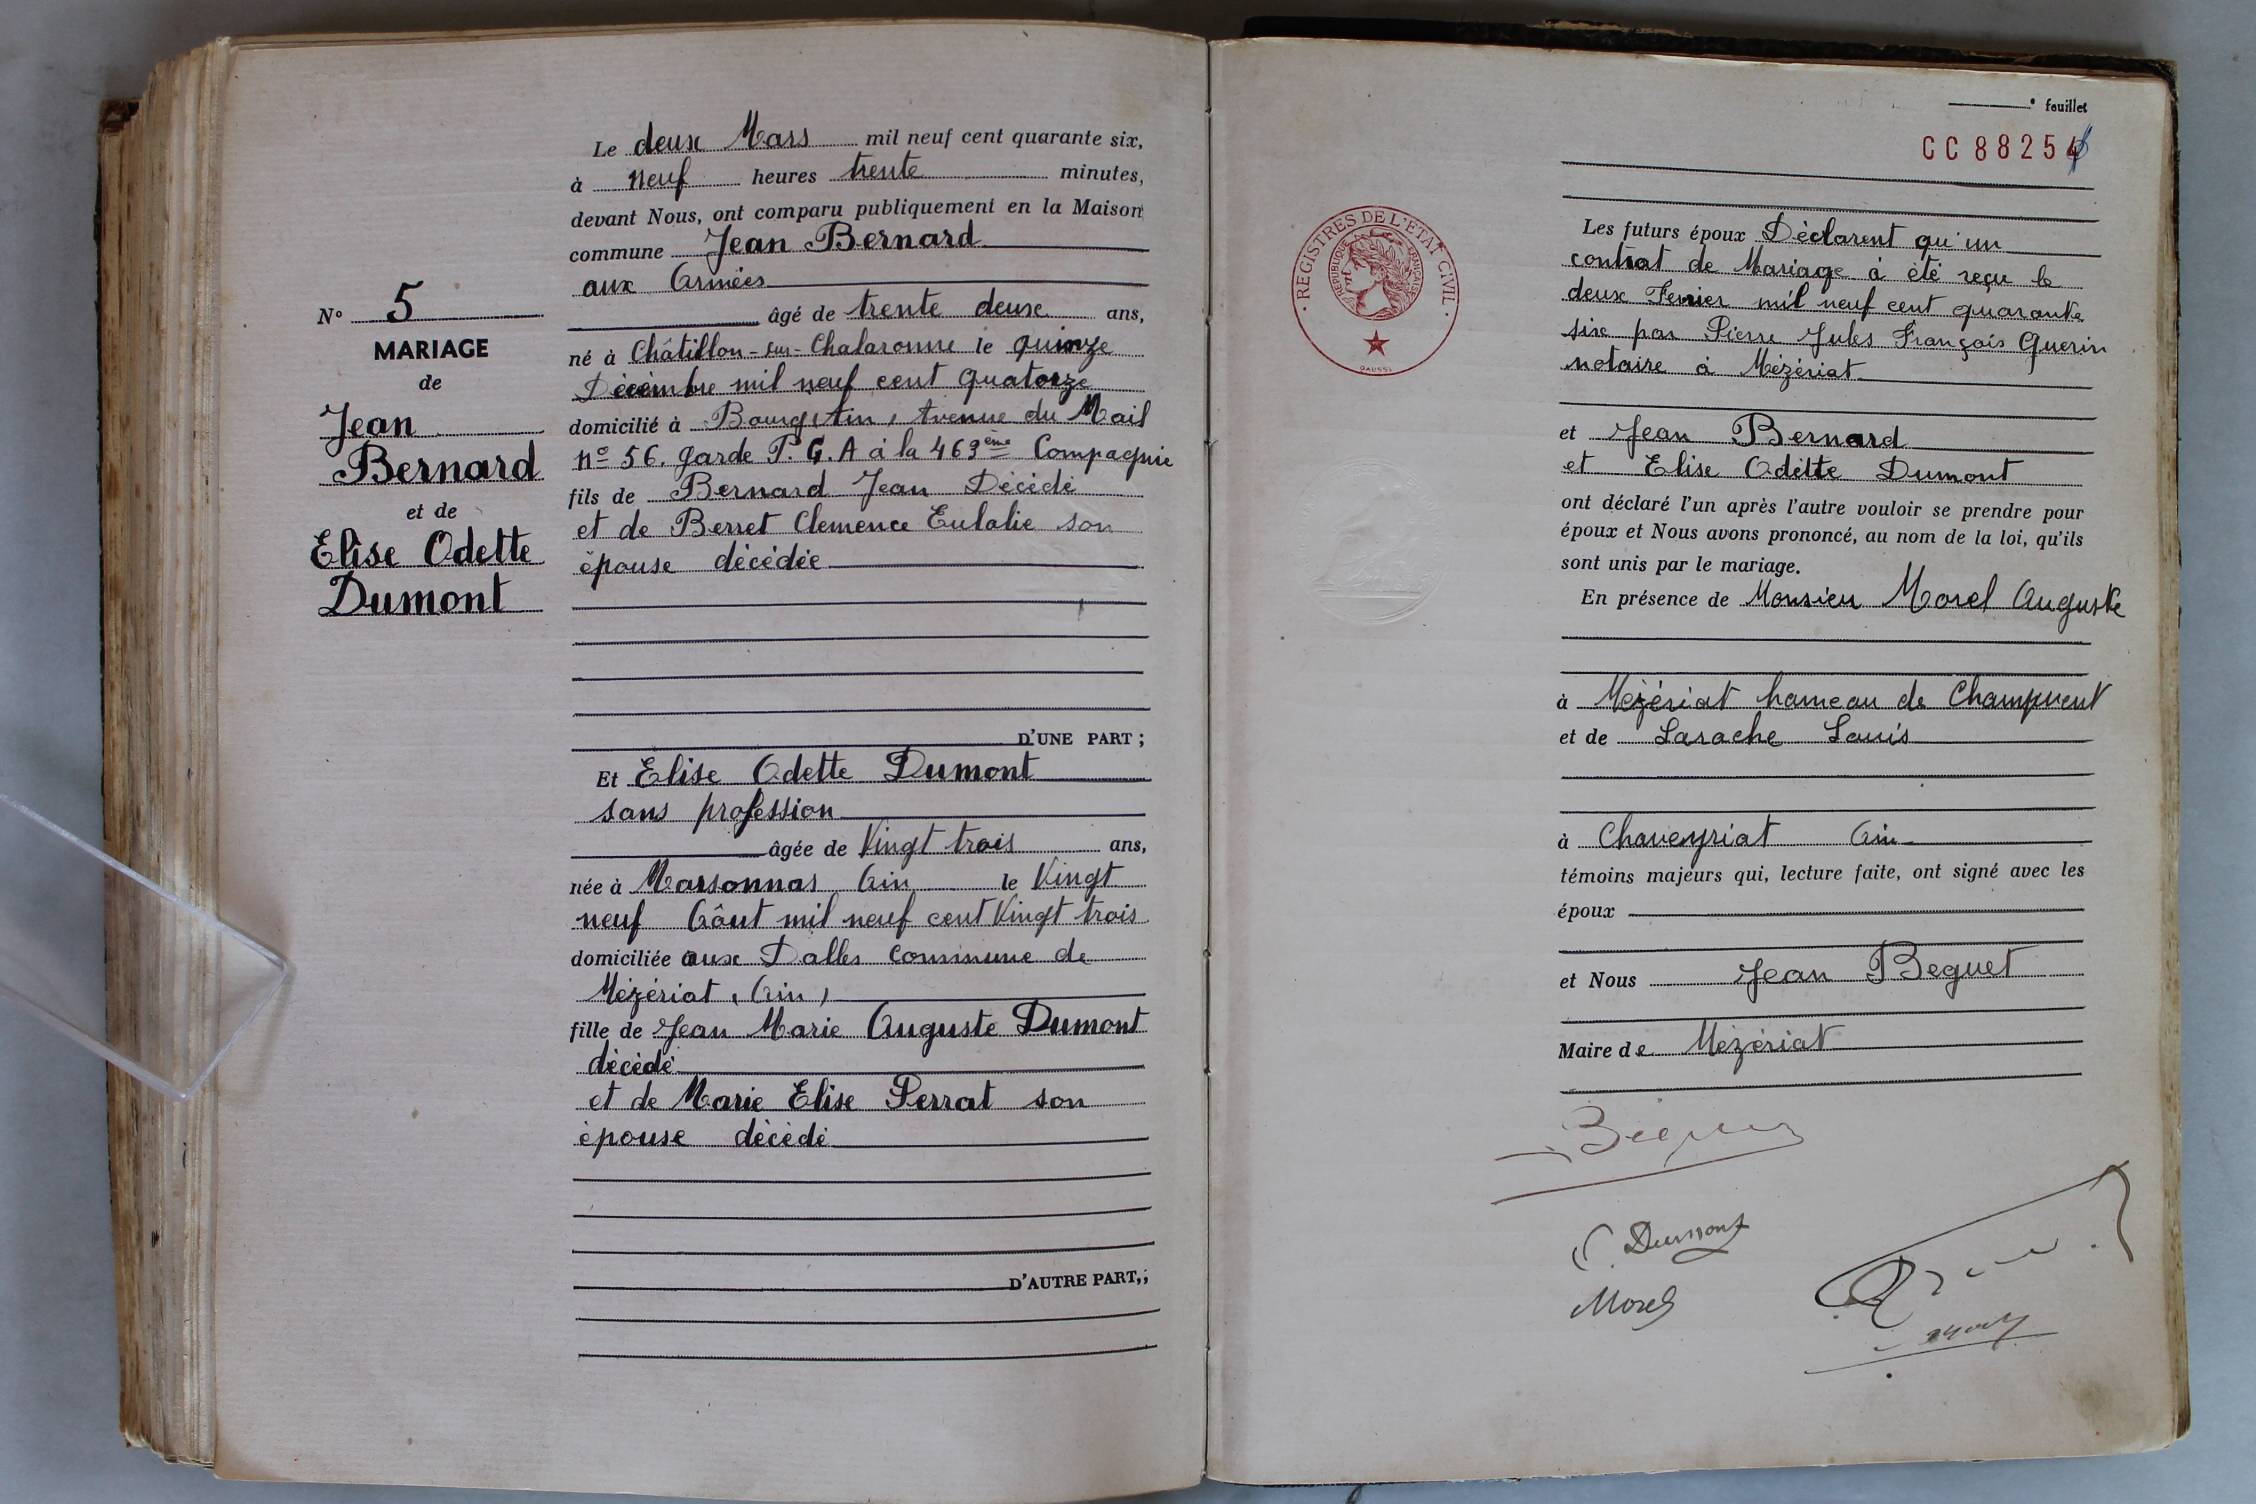 Le deux Mars mil neuf cent quarante six,
à neuf heures trente minutes,
devant Nous, ont comparu publiquement en la Maison
commune Jean Bernard
aux Armées
âgé de trente deux ans,
né à Châtillon-sur-Chalaronne le quinze
Décembre mil neuf cent quatorze
domicilié à Bourg (Ain) Avenue du Mail
nº 56. garde P.G.A à la 469ème Compagnie
fils de Bernard Jean Décédé
et de Berret Clemence Eulalie son
épouse décédée
D'UNE PART ;
Nº 5
MARIAGE
de
Jean
Bernard
et de
Elise Odette
Dumont
Et Elise Odette Dumont
sans profession
âgée de Vingt trois ans,
née à Marsonnas Ain le Vingt
neuf Août mil neuf cent Vingt trois
domiciliée aux Dalles commune de
Mézériat (Ain)
fille de Jean Marie Auguste Dumont
décédé
et de Marie Elise Perrat son
épouse décédé
D'AUTRE PART,;
feuillet
CC 88254
REGISTRES DE L'ÉTAT CIVIL
RÉPUBLIQUE FRANÇAISE
Les futurs époux Déclarent qu'un
contrat de Mariage à été reçu le
deux Fevrier mil neuf cent quarante
six par Pierre Jules François Guerin
notaire à Mézériat
et Jean Bernard
et Elise Odette Dumont
ont déclaré l'un après l'autre vouloir se prendre pour
époux et Nous avons prononcé, au nom de la loi, qu'ils
sont unis par le mariage.
En présence de Monsieu Morel Auguste
à Mézériat hameau de Champvent
et de Larache Louis
à Chaveyriat Ain
témoins majeurs qui, lecture faite, ont signé avec les
époux
et Nous Jean Beguet
Maire de Mézériat
Dumont
Morel